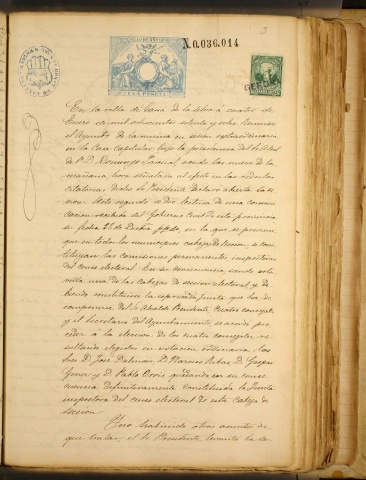 3
N.0.036.014
UNA PESETA
En la villa de Cassá de la Selva á cuatro de
Enero de mil ochocientos setenta y ocho. Reunido
el Ayunto. de la misma en sesion extraordinaria
en la Casa Capitular bajo la presidencia del Sr. Alcal
de D. Domingo siendo las nueve de la
mañana, hora señalada al efecto en las cedulas
citatorias; dicho Sr. Presidente declaró abierta la se
sion. Acto seguido se dió lectura de una comuni
cacion recibida del Gobierno Civil de esta provincia
su fecha 28 de ppdo, en la que se previene
que en todos los municipios cabeza de seccion, se cons
tituyan las comisiones permanentes inspectoras
del censo electoral. En su consecuencia, siendo esta
villa una de las cabezas de seccion electoral, y de
biendo constituirse la expresada Junta que ha de
componerse del Sr. Alcalde Presidente, cuatro concejales
y el Secretario del Ayuntamiento, se acordó pro
ceder á la eleccion de los cuatro concejales, re
sultando elegidos en votacion ordinaria los
Sres. D. José Dalmau, D. Narciso Ribas, D. Gaspar
y D. Pablo quedando en su conse
cuencia definitivamente constituida la Junta
inspectora del censo electoral de esta cabeza de
seccion.
Y no habiendo otros asuntos de
que tratar, el Sr. Presidente levantó la se